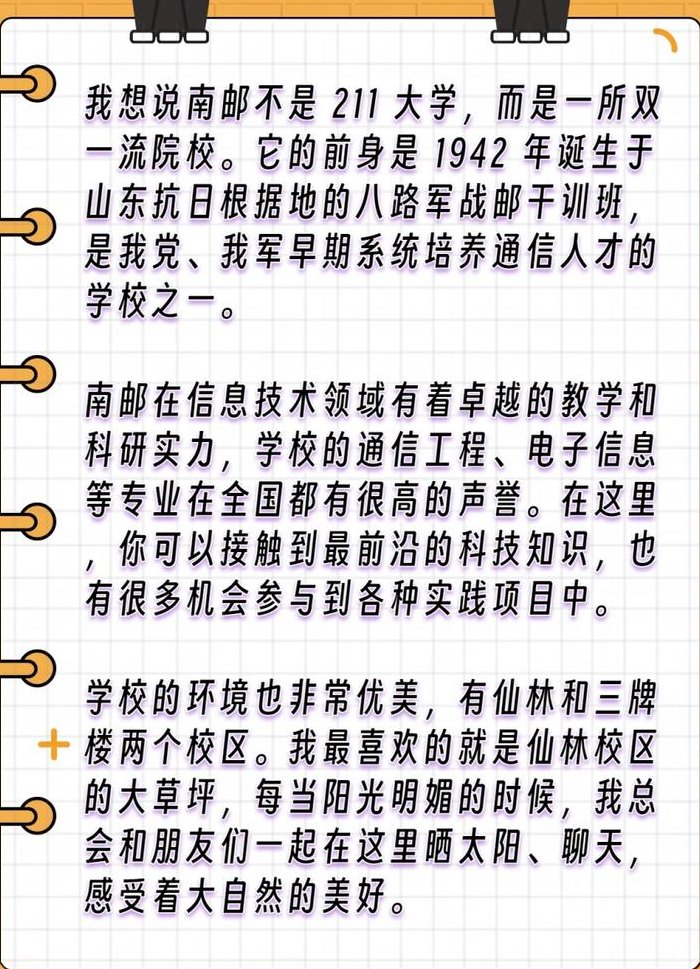 我想说南邮不是 211 大学，而是一所双
一流院校。它的前身是 1942 年诞生于
山东抗日根据地的八路军战邮干训班，
是我党、我军早期系统培养通信人才的
学校之一。
南邮在信息技术领域有着卓越的教学和
科研实力，学校的通信工程、电子信息
等专业在全国都有很高的声誉。在这里
，你可以接触到最前沿的科技知识，也
有很多机会参与到各种实践项目中。
学校的环境也非常优美，有仙林和三牌
楼两个校区。我最喜欢的就是仙林校区
的大草坪，每当阳光明媚的时候，我总
会和朋友们一起在这里晒太阳、聊天，
感受着大自然的美好。